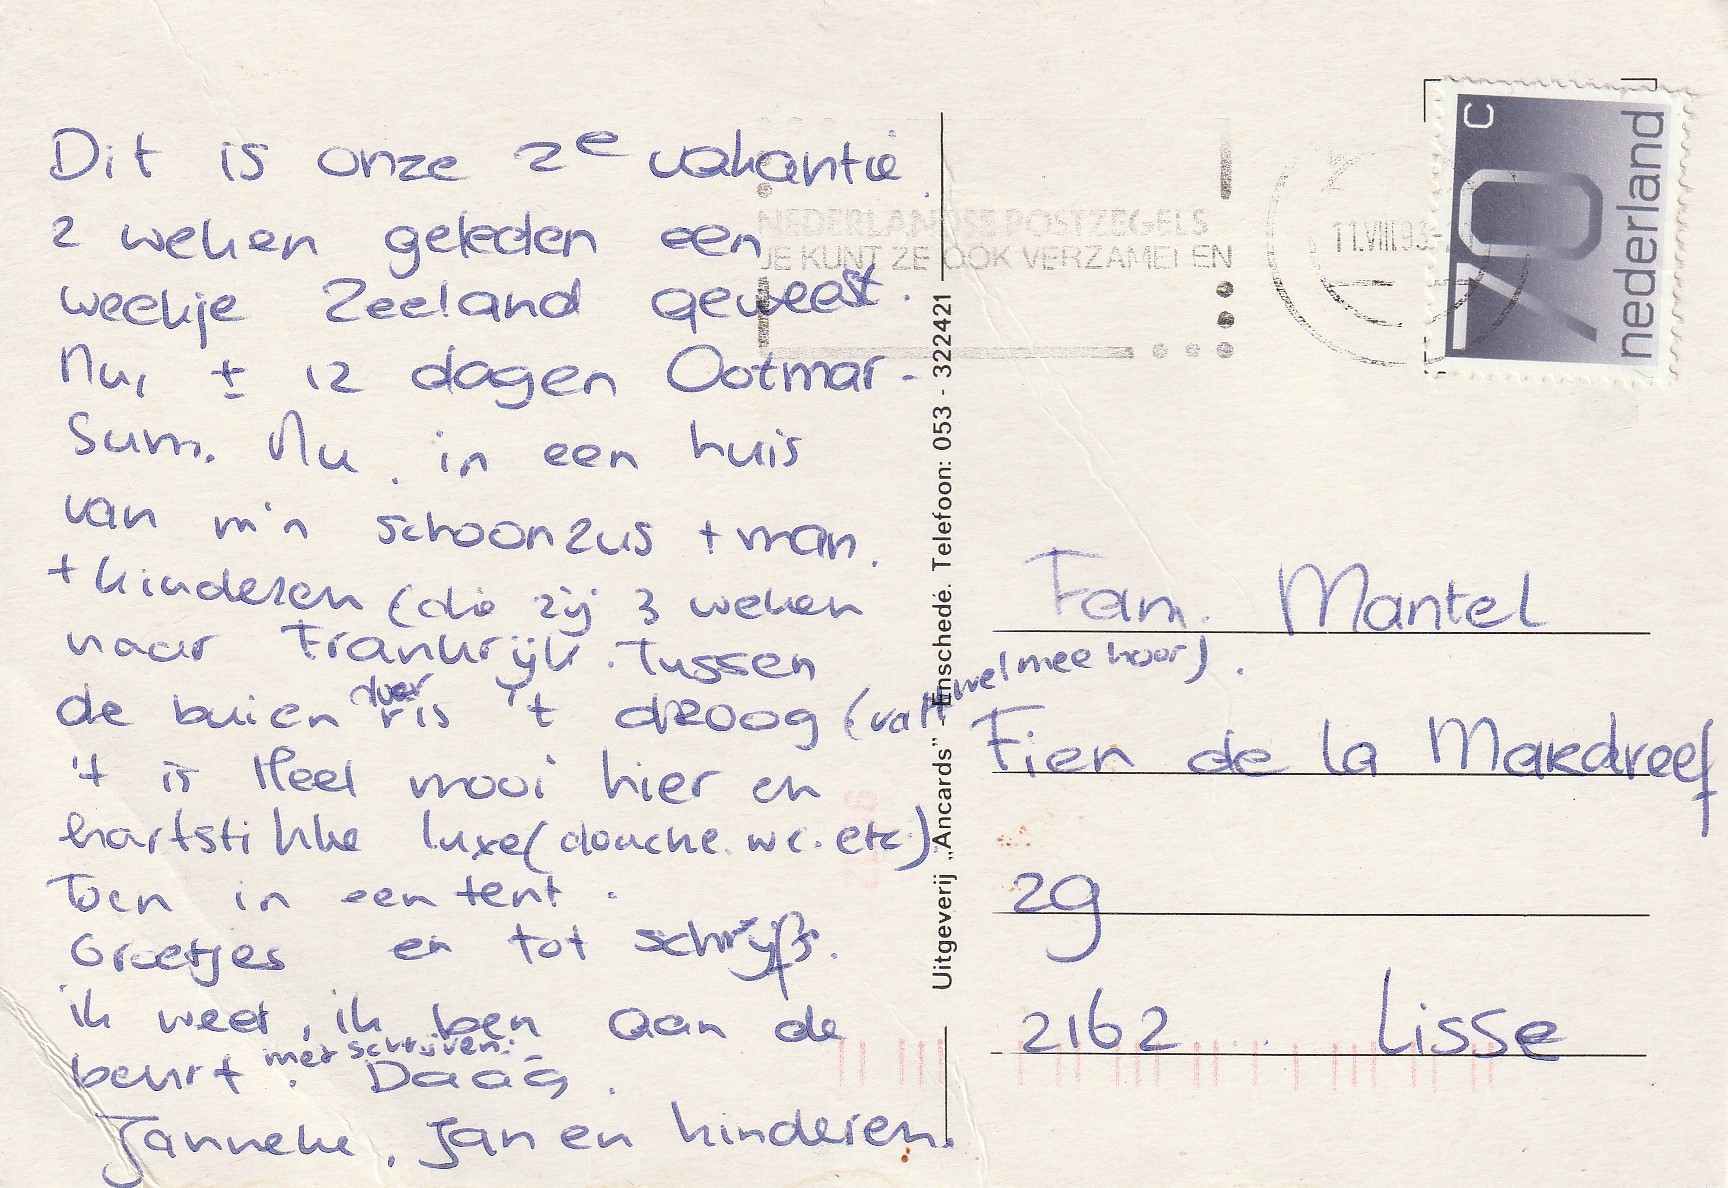 Dit is onze 2e vakantie.
2 weken geleden een
weekje Zeeland geweest.
Nu, ± 12 dagen Ootmar-
sum. Nu in een huis
van m'n schoonzus + man.
+ kinderen (die zij 3 weken
naar Frankrijk. Tussen
de buien door is 't droog (valt wel mee hoor).
't is Heel mooi hier en
hartstikke luxe (douche. wc. etc).
Toen in een tent.
Groetjes en tot schrijfs.
ik weer, ik ben aan de
beurt met schrijven. Daag.
Janneke, Jan en kinderen.
NEDERLANDSE POSTZEGELS
JE KUNT ZE OOK VERZAMELEN
11.VIII.93
70 c
nederland
Uitgeverij „Ancards" - Enschedé. Telefoon: 053 - 322421
Fam. Mantel
Fien de la Mardreef
29
2162 Lisse